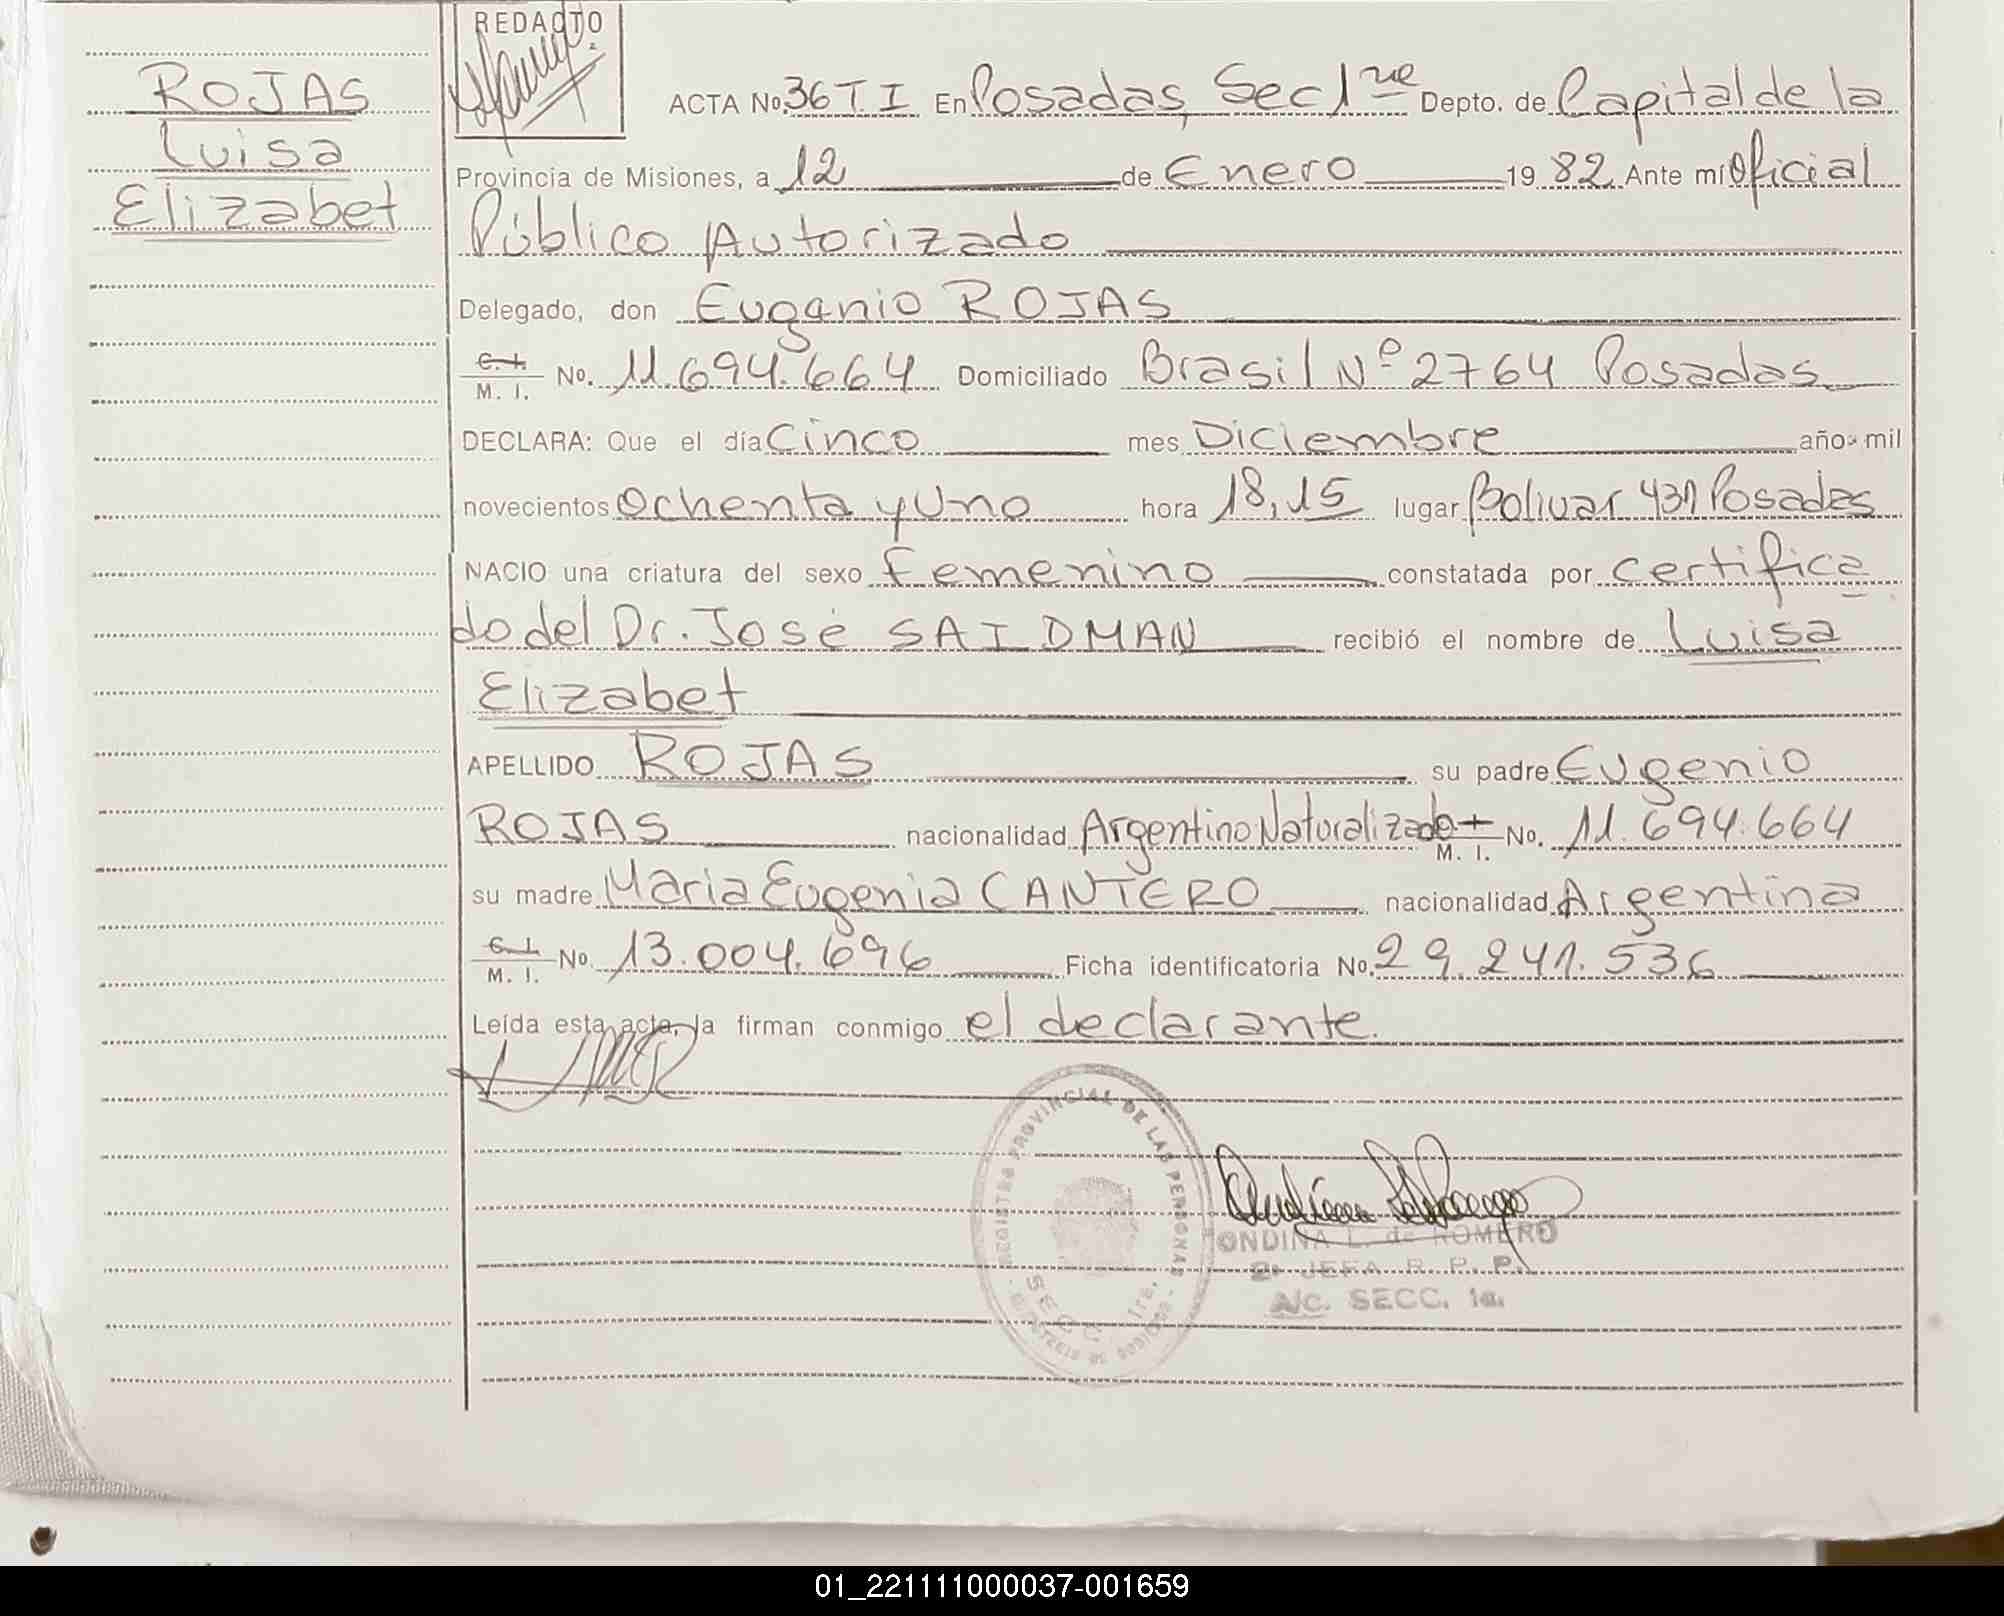 ROJAS
Luisa
Elizabet
REDACTO
ACTA No. 36 T. I En Posadas, Sec 1ra Depto. de Capital de la
Provincia de Misiones, a 12 de Enero 19 82 Ante mí Oficial
Público Autorizado
Delegado, don Eugenio ROJAS
C. I. M. I. No. 11.694.664 Domiciliado Brasil Nº 2764 Posadas
DECLARA: Que el día Cinco mes Diciembre año mil
novecientos Ochenta y Uno hora 18,15 lugar Bolivar 437 Posadas
NACIO una criatura del sexo femenino constatada por certifica
do del Dr. José SAIDMAN recibió el nombre de Luisa
Elizabet
APELLIDO ROJAS su padre Eugenio
ROJAS nacionalidad Argentino Naturalizado M. I. No. 11.694.664
su madre Maria Eugenia CANTERO nacionalidad Argentina
C. I. M. I. No. 13.004.696 Ficha identificatoria No. 29.241.536
Leída esta acta, la firman conmigo el declarante.
REGISTRO PROVINCIAL DE LAS PERSONAS
SECC. 1ra.
ONDINA L. de ROMERO
2ª JEFA R. P. P.
A/C. SECC. 1a.
01_221111000037-001659